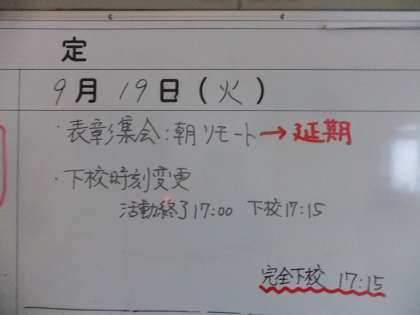 定
9月19日(火)
・表彰集会:朝リモート→延期
・下校時刻変更
活動終了17:00 下校17:15
完全下校 17:15